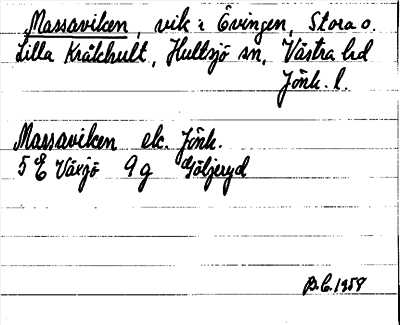 Massaviken, vik i Övingen, Stora o.
Lilla Kråkhult, Hultsjö sn, Västra hd
Jönk. l.
Massaviken ek. Jönk.
5 E Växjö 9 g Göljeryd
1958